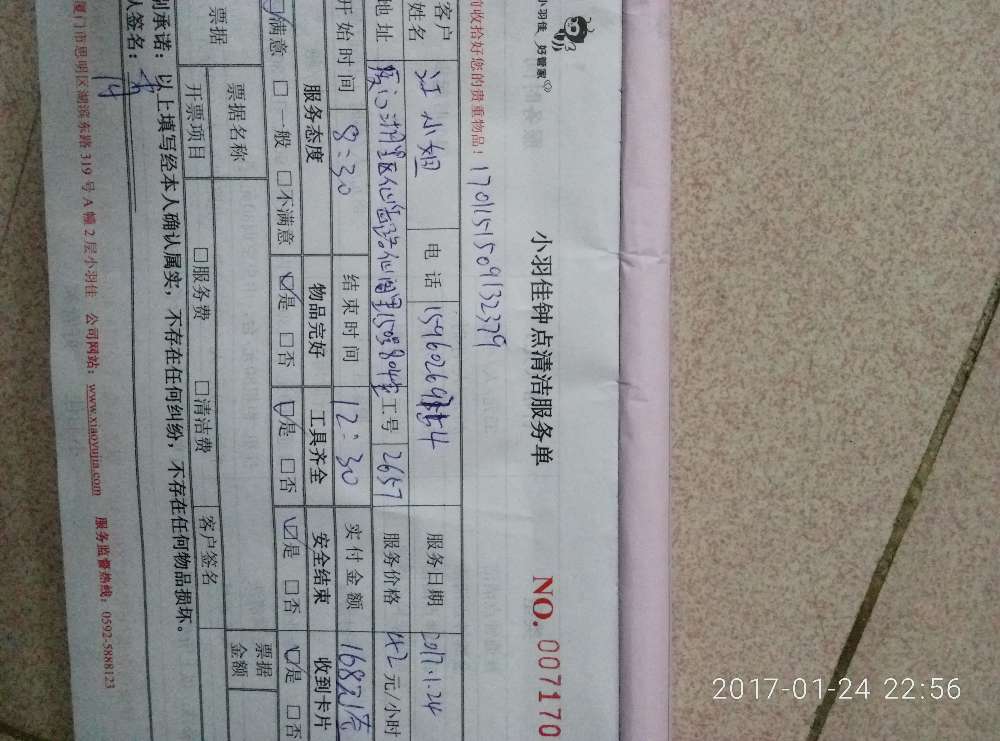 小羽佳 好管家
小羽佳钟点清洁服务单 NO. 007170
前收拾好您的贵重物品! 1701151509132379
客户姓名 江小姐 电话 服务日期 2017.1.24
地址 工号 2657 服务价格 42 元/小时
开始时间 8:30 结束时间 12:30 实付金额 168
服务态度 物品完好 工具齐全 安全结束 收到卡片
☑满意 □一般 □不满意 ☑是 □否 ☑是 □否 ☑是 □否 ☑是 □否
票据 票据名称 票据金额
开票项目 □服务费 □清洁费 客户签名
别承诺:以上填写经本人确认属实,不存在任何纠纷,不存在任何物品损坏。
人签名:
厦门市思明区湖滨东路 319 号 A 幢 2 层小羽佳 公司网站:www.xiaoyujia.com 服务监督热线:0592-5888123
2017-01-24 22:56